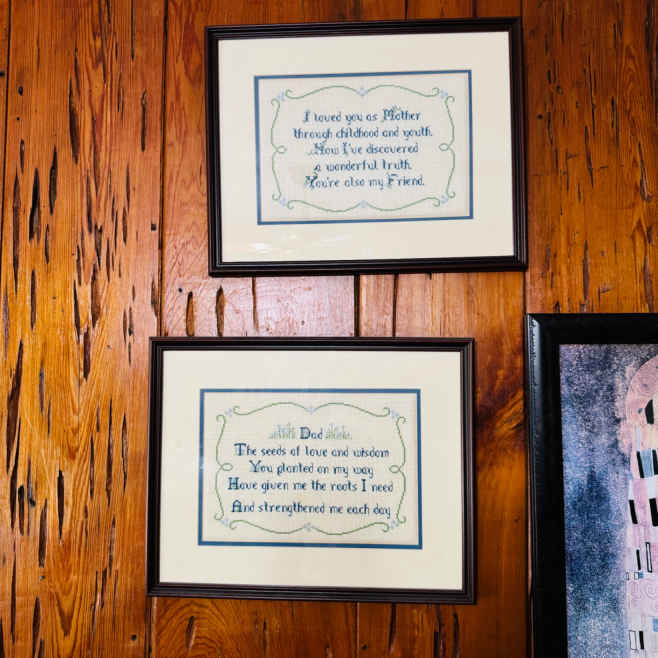 I loved you as Mother
through childhood and youth.
Now I've discovered
a wonderful truth.
You're also my Friend.
Dad
The seeds of love and wisdom
You planted on my way
Have given me the roots I need
And strengthened me each day